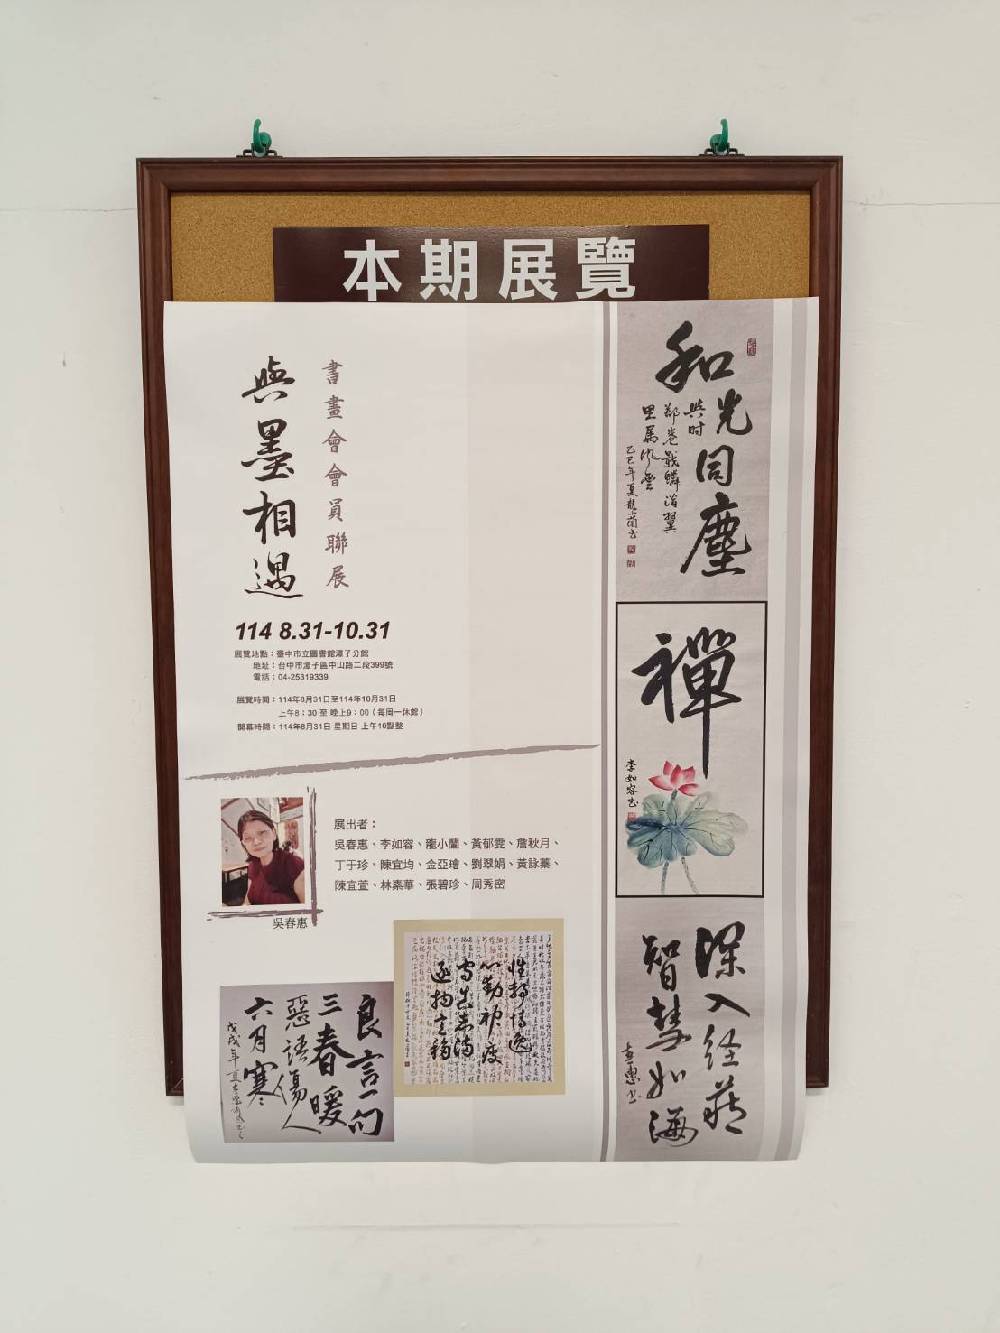 本期展覽
與墨相遇
書畫會會員聯展
114 8.31-10.31
展覽地點：臺中市立圖書館潭子分館
地址：台中市潭子區中山路二段399號
電話：04-25319339
展覽時間：114年8月31日至114年10月31日
上午8：30 至 晚上9：00（每周一休館）
開幕時間：114年8月31日 星期日 上午10點整
展出者：
吳春惠、李如容、龐小蘭、黃郁雯、詹秋月、
丁于珍、陳宜均、金亞璿、劉翠娟、黃詠蓁、
陳宜萱、林素華、張碧珍、周秀密
吳春惠
和光同塵
與时
禪
李如容书
深入经藏
智慧如海
春惠书
良言一句
三春暖
惡語傷人
六月寒
性靜情逸
心動神疲
守真志滿
逐物意移